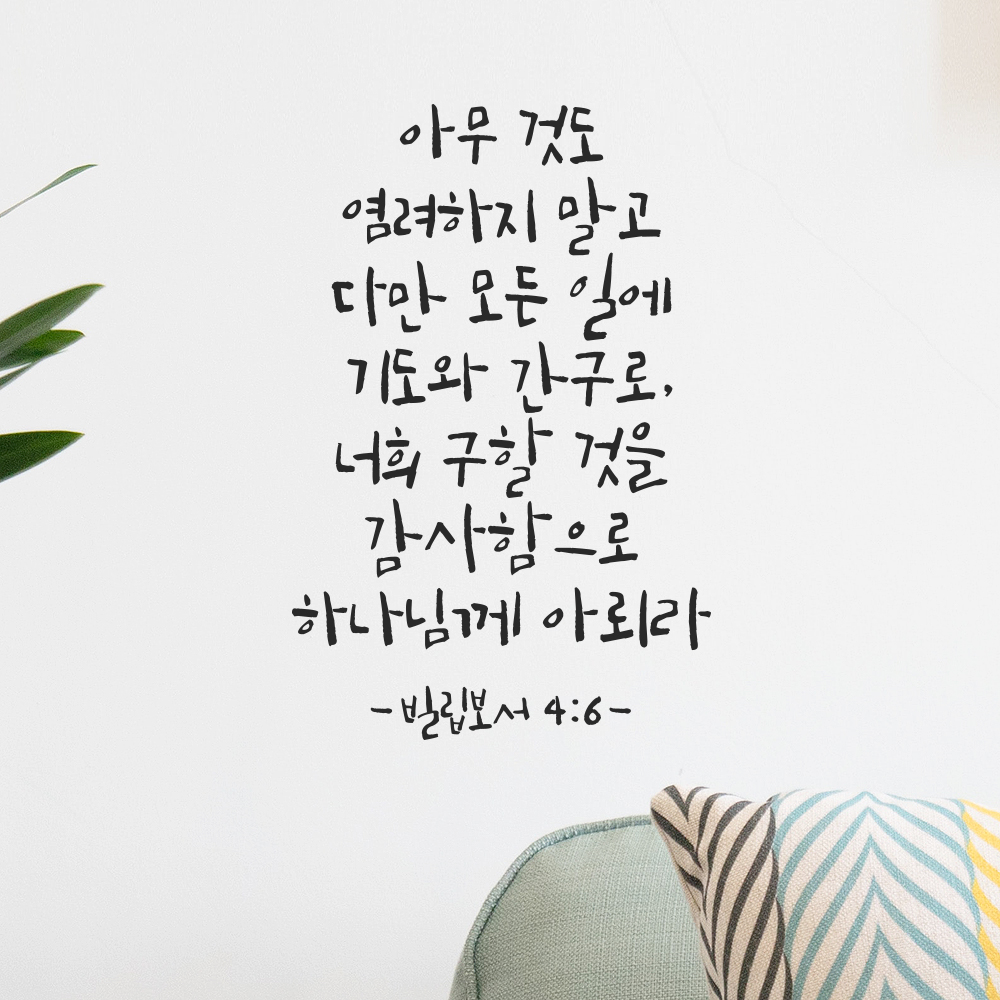 아무 것도
염려하지 말고
다만 모든 일에
기도와 간구로,
너희 구할 것을
감사함으로
하나님께 아뢰라
-빌립보서 4:6-